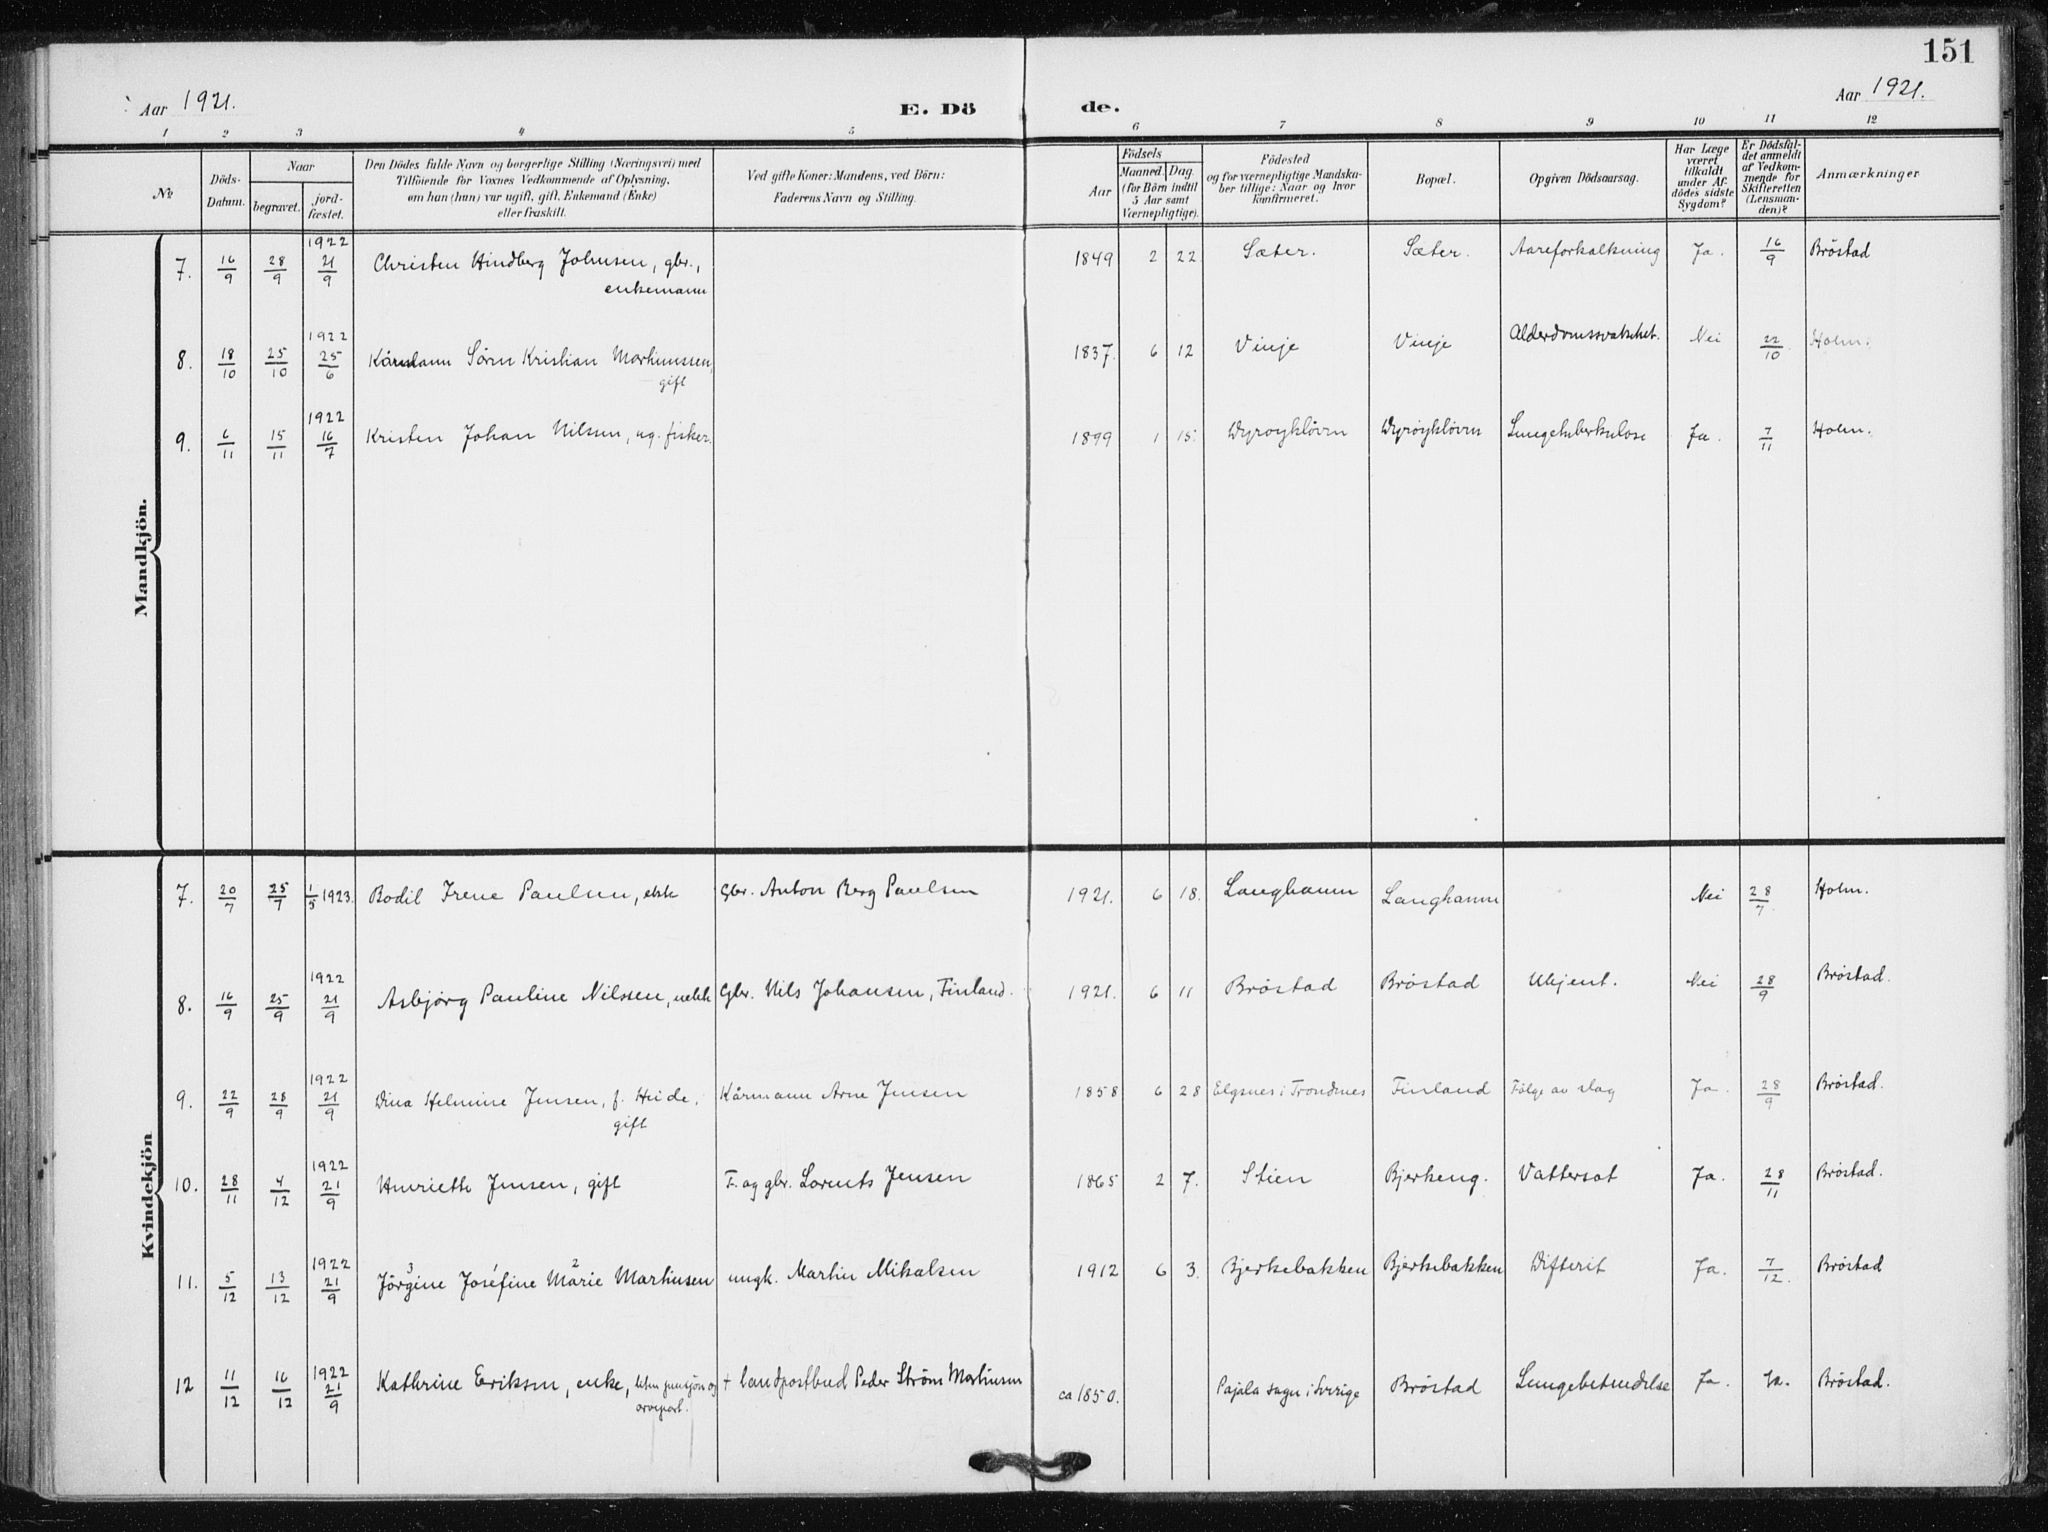 151
Aar 1921.
E. Dö de.
Aar 1921.
1 2 3 4 5 6 7 8 9 10 11 12
No
Döds-Datum.
Naar
begravet.
jord-fæstet.
Den Dödes fulde Navn og borgerlige Stilling (Næringsvei) med
Tilföiende for Voxnes Vedkommende af Oplysning,
om han (hun) var ugift, gift, Enkemand (Enke)
eller fraskilt.
Ved gifte Koner: Mandens, ved Börn:
Faderens Navn og Stilling.
Födsels
Aar
Maaned. Dag.
(for Börn indtil
5 Aar samt
Værnepligtige).
Födested
og for værnepligtige Mandska-
ber tillige: Naar og hvor
konfirmeret.
Bopæl.
Opgiven Dödsaarsag.
Har Læge
været
tilkaldt
under Af-
dödes sidste
Sygdom?
Er Dödsfal-
det anmeldt
af Vedkom-
mende for
Skifteretten
(Lensman-
den)?
Anmærkninger
Mandkjön.
7. 16/9 28/9 1922 21/9 Christen Hindberg Johnsen, gbr., enkemann 1849 2 22 Sæter. Sæter. Aareforkalkning Ja. 16/9 Bröstad
8. 18/10 25/10 1922 25/6 Kårmann Sörn Kristian Martinussen, gift 1837. 6 12 Vinje Vinje Alderdomssvakhet. Nei 22/10. Holm.
9. 6/11 15/11 1922 16/7 Kristen Johan Nilsen, ug. fisker. 1899 1 15. Dyröykløvn Dyröykløvn Lungetuberkulose Ja. 7/11 Holm.
Kvindekjön
7. 20/7 25/7 1/5 1923. Bodil Irene Paulsen, ekte Gbr. Anton Berg Paulsen 1921. 6 18. Langhamn Langhamn Nei 28/7. Holm.
8. 16/9 25/9 1922 21/9 Asbjörg Pauline Nilssen, uekte Gbr. Nils Johansen, Finland. 1921. 6 11 Bröstad Bröstad Ukjent. Nei 28/9 Bröstad.
9. 22/9 28/9 1922 21/9 Dina Helmine Jensen, f. Heide, gift Kårmann Arne Jensen 1858 6 28 Elgsnes i Trondnes Finland Fölge av slag Ja. 28/9 Bröstad.
10. 28/11 4/12 1922 21/9 Henriette Jensen, gift F. og gbr. Lorents Jensen 1865 2 7. Stien Bjerkeng. Vattersot Ja. 28/11 Bröstad.
11. 5/12 13/12 1922 21/9 Jörgine 3 Josefine Marie 2 Martinsen ungk. Martin Mikalsen 1912 6 3. Bjerkebakken Bjerkebakken Difterit Ja. 7/12. Bröstad
12 11/12 16/12 1922 21/9 Kathrine Eriksen, enke, liten pensjon og † landpostbud Peder Ström Martinsen ca 1850. Pajala sogn i Sverige Bröstad Lungebetendelse Ja. Ja. Bröstad.